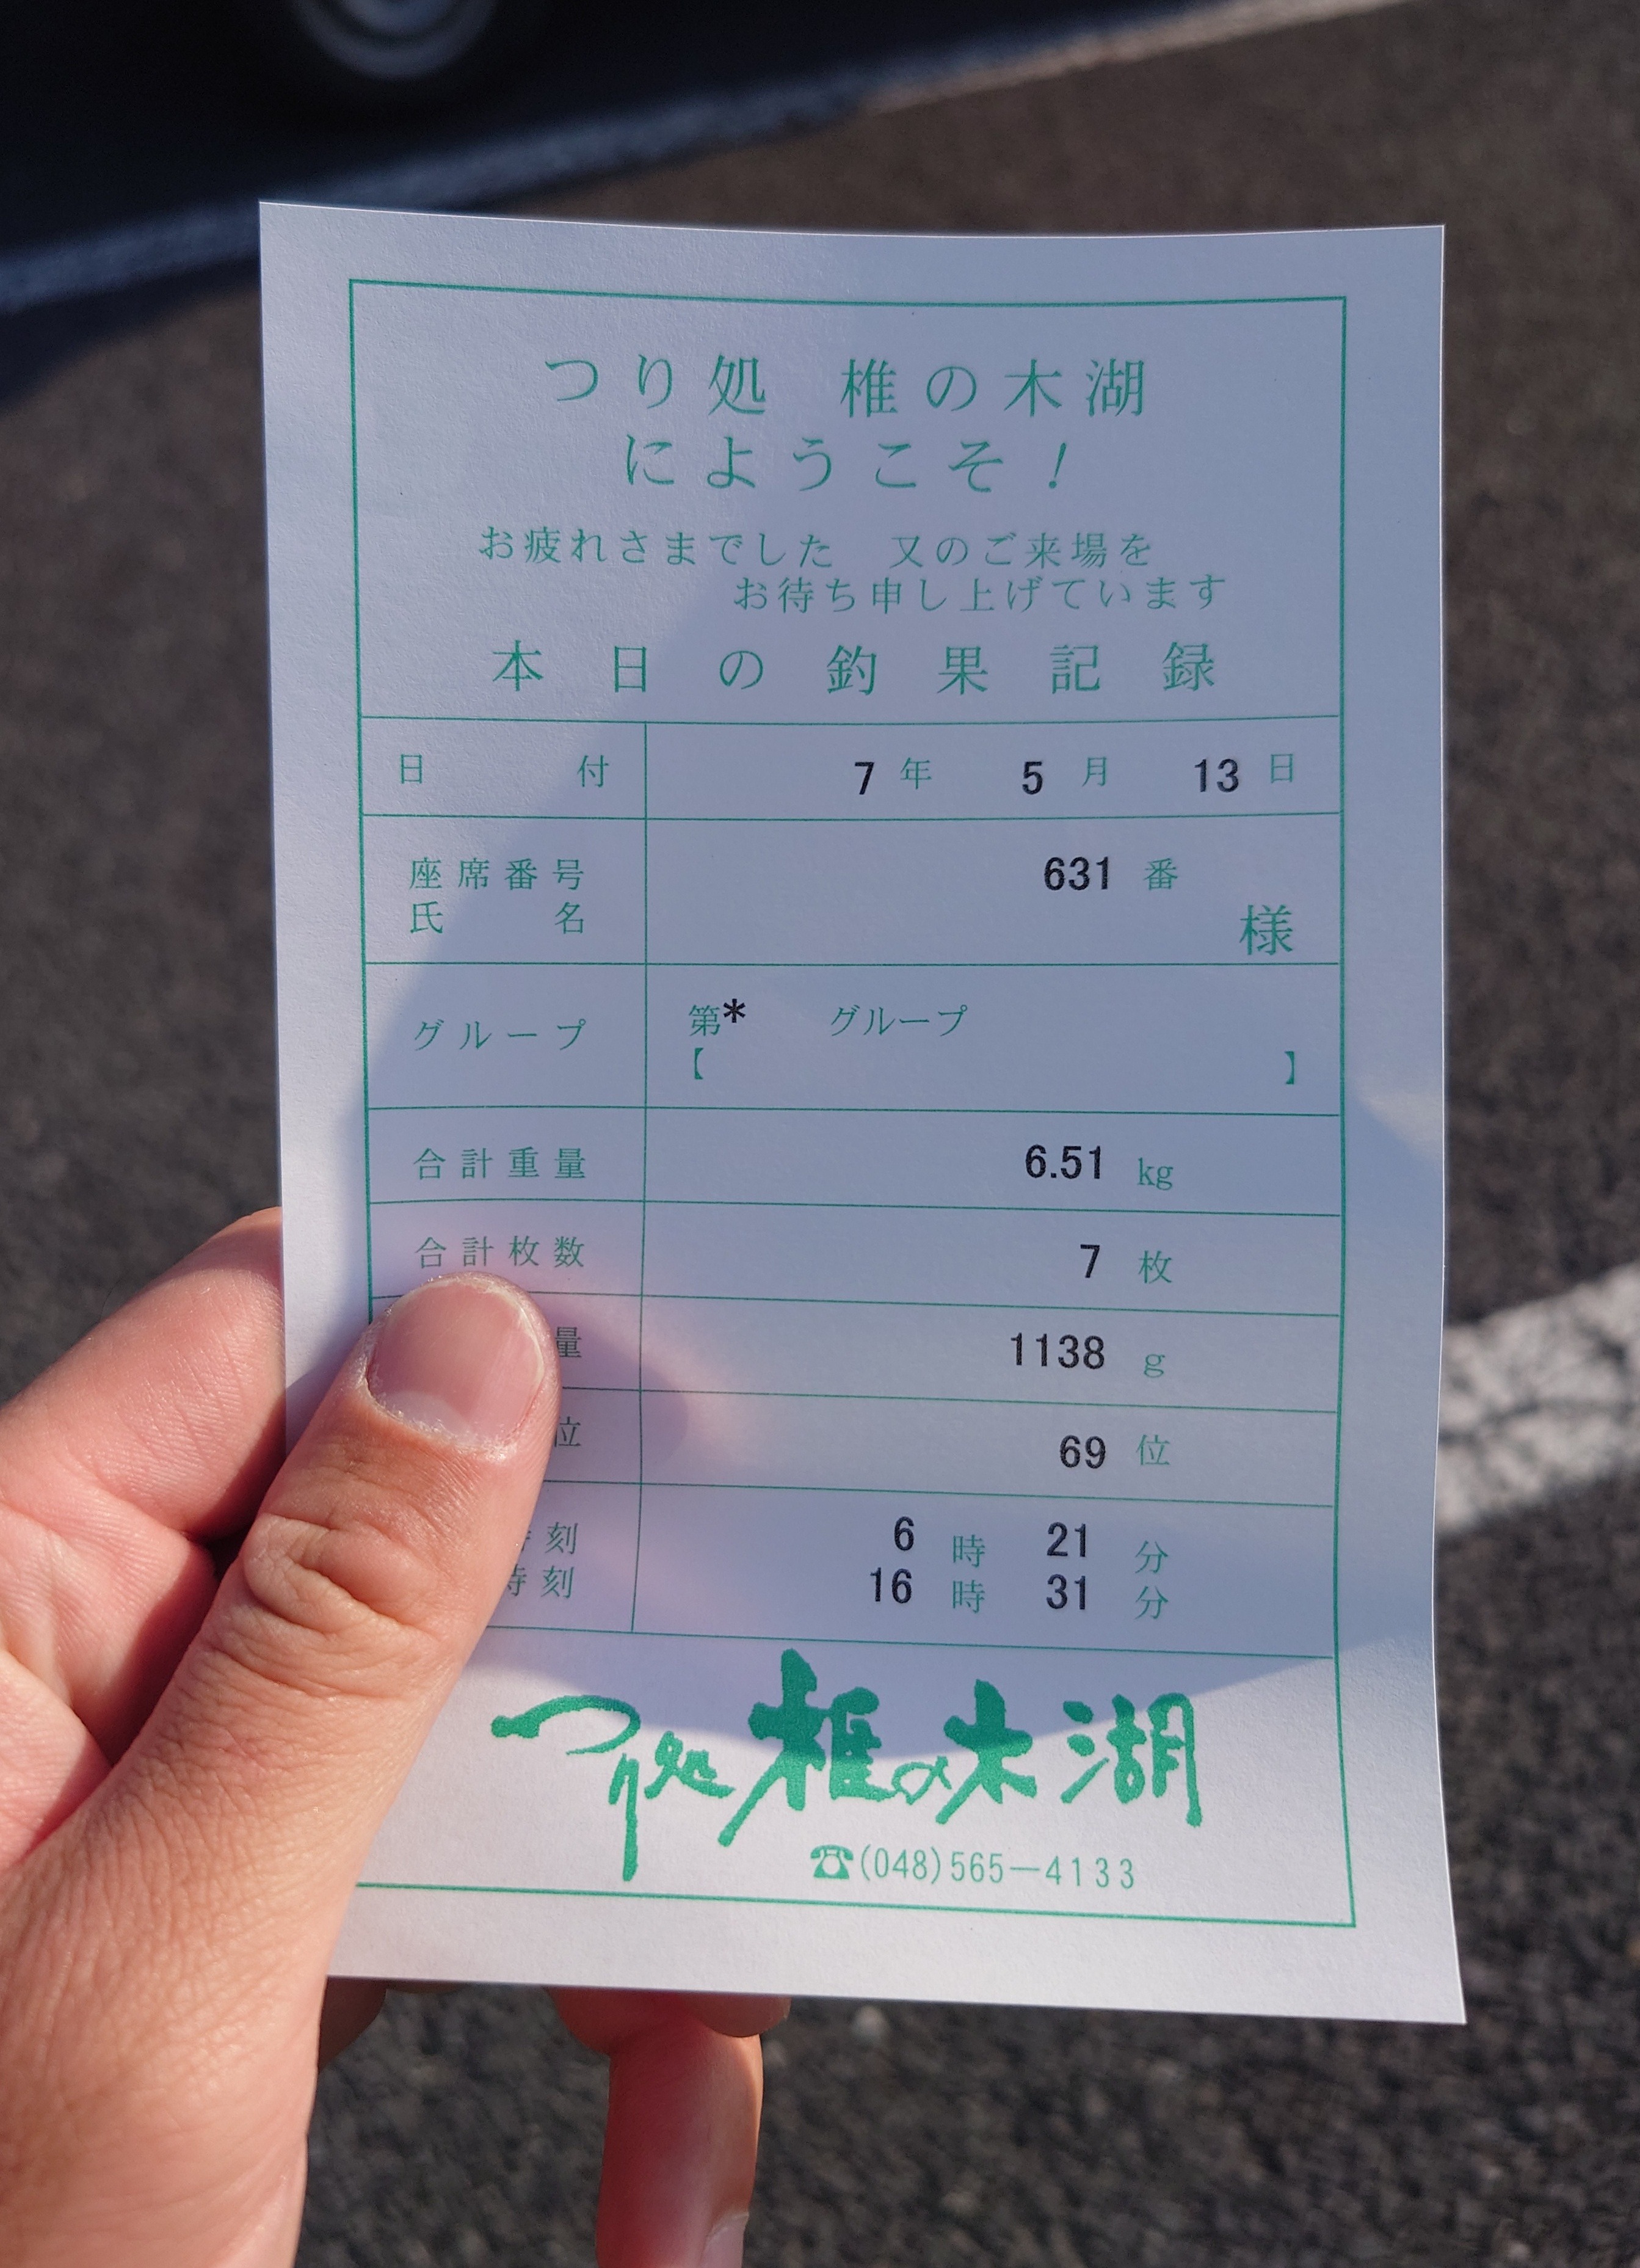 つり処 椎の木湖
にようこそ!
お疲れさまでした 又のご来場を
お待ち申し上げています
本日の釣果記録
日付 7年 5月 13日
座席番号 631番
氏名 様
グループ 第* グループ
【 】
合計重量 6.51 kg
合計枚数 7 枚
量 1138 g
位 69 位
時刻 6 時 21 分
時刻 16 時 31 分
つり処 椎の木湖
☎(048)565-4133